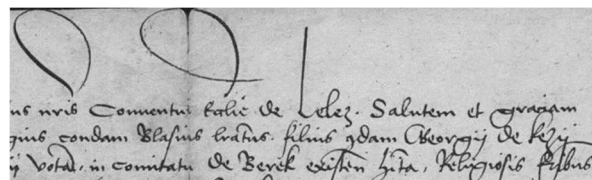 us nris Conventui Ecclie de Lelez. Salutem et graciam
quis condam Blasius lratus filius qdam Georgij de
ij votas in comitatu de Berek existen hita, Religiosis